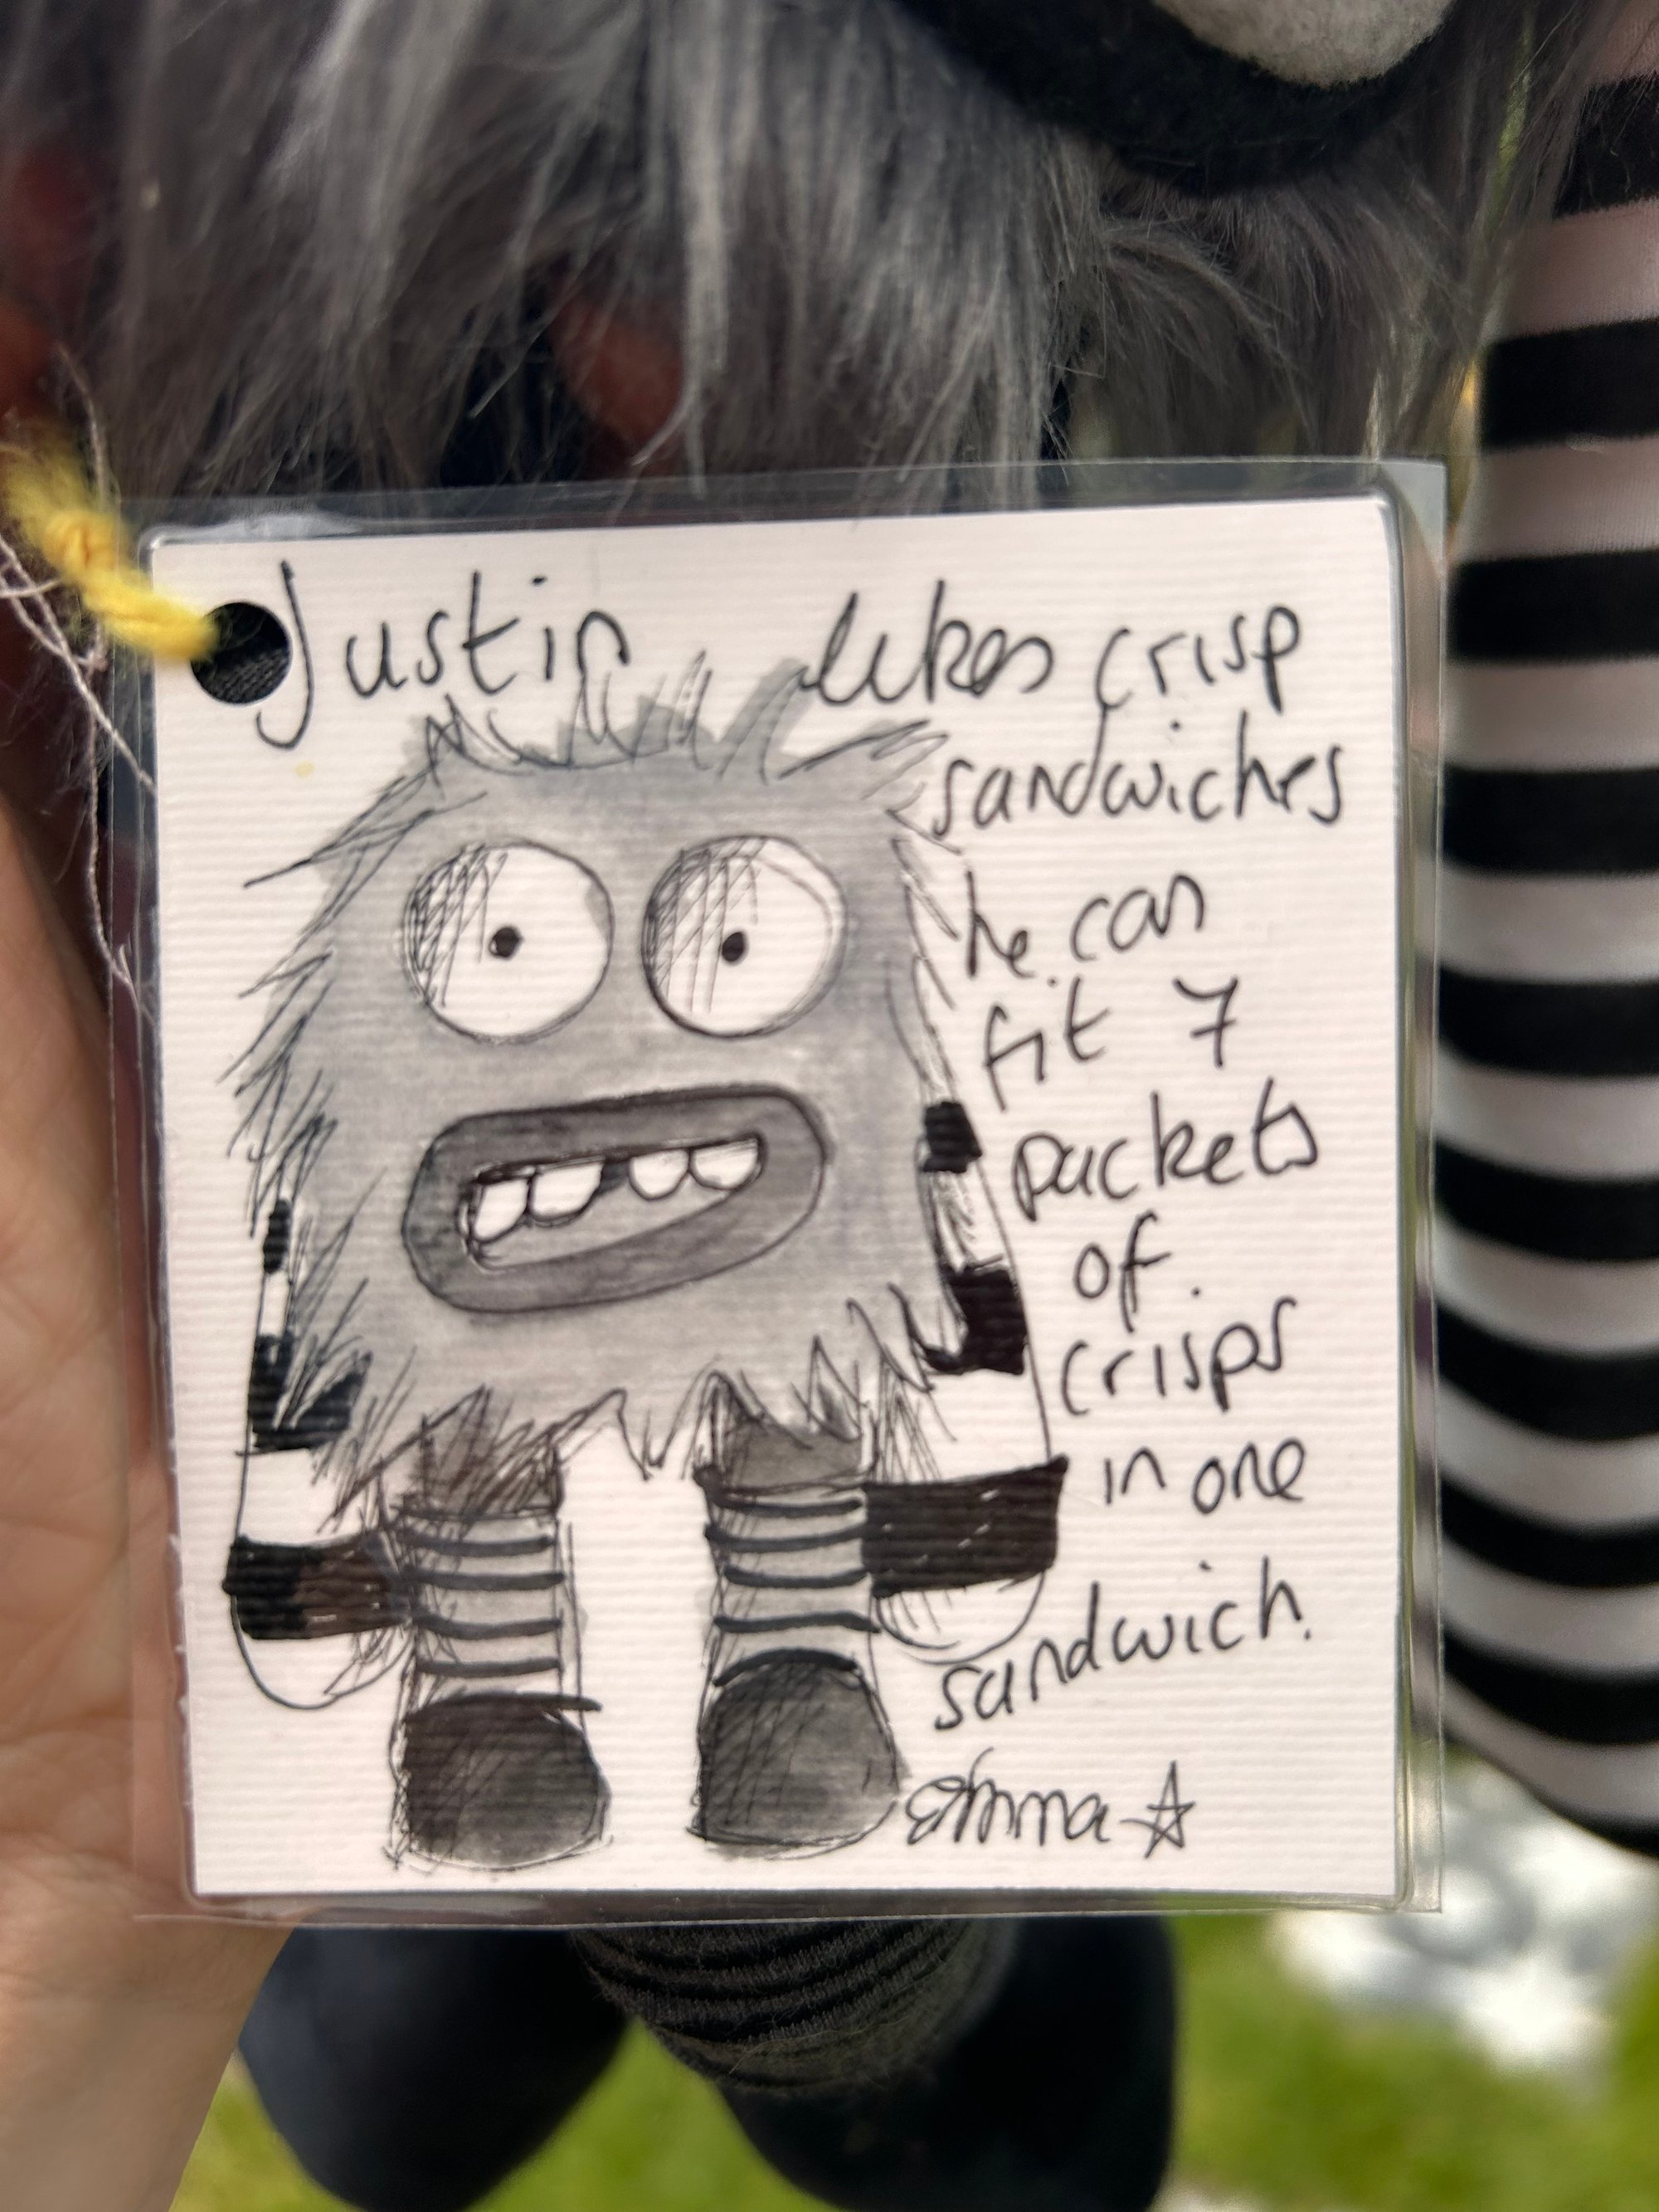 Justin likes crisp
sandwiches
he can
fit 7
packets
of
crisps
in one
sandwich.
Emma